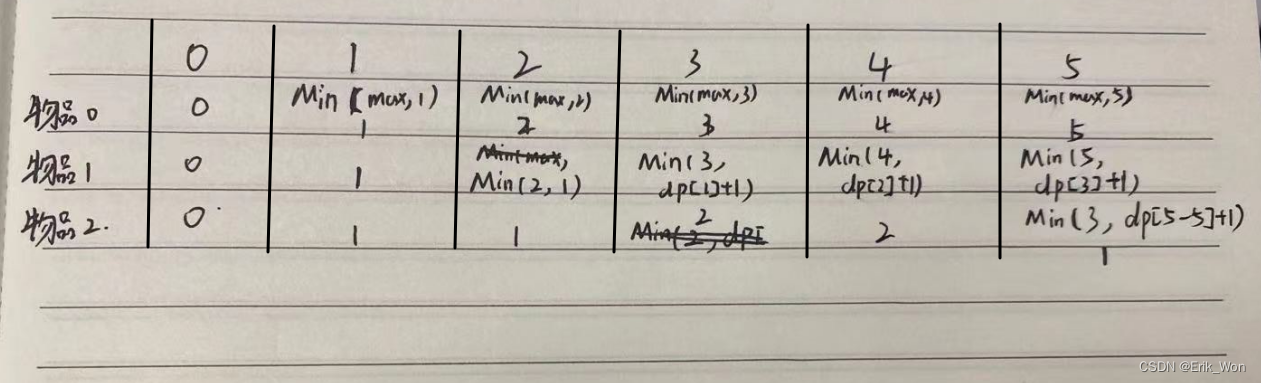 0 1 2 3 4 5
物品0 0 Min(max,1) Min(max,2) Min(max,3) Min(max,4) Min(max,5)
1 2 3 4 5
物品1 0 1 Min(max, Min(3, Min(4, Min(5,
Min(2,1) dp[1]+1) dp[2]+1) dp[3]+1)
物品2. 0 1 1 2 2 Min(3, dp[5-5]+1)
Min(2,dp[
1
CSDN @Erik_Won